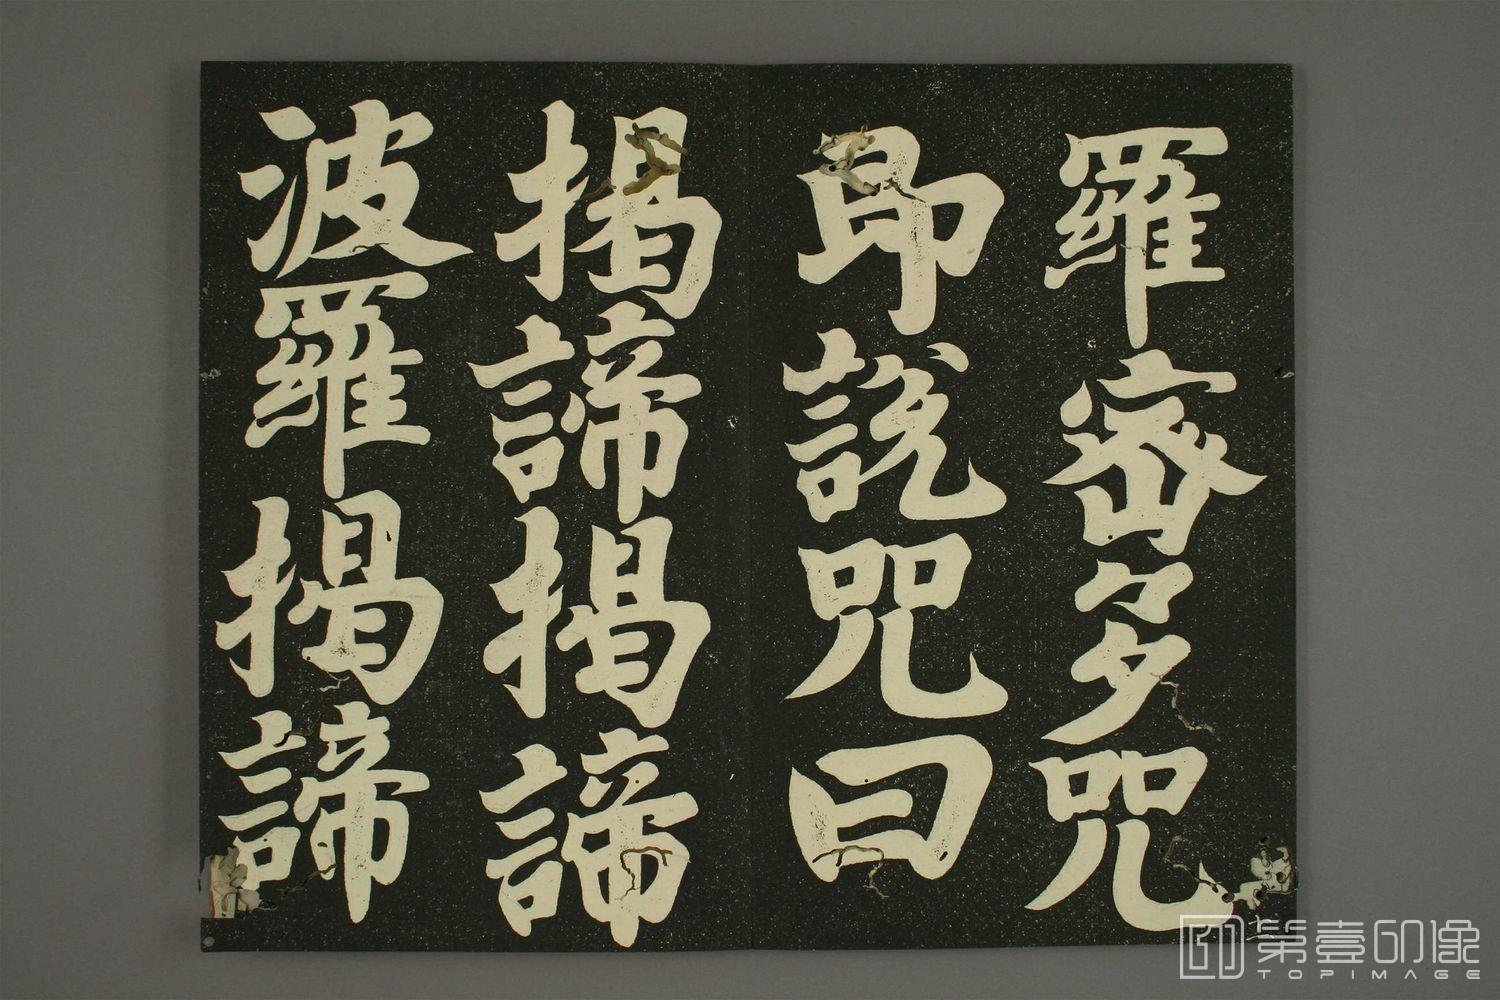 羅密多咒
即說咒曰
揭諦揭諦
波羅揭諦
第壹印像
TOPIMAGE